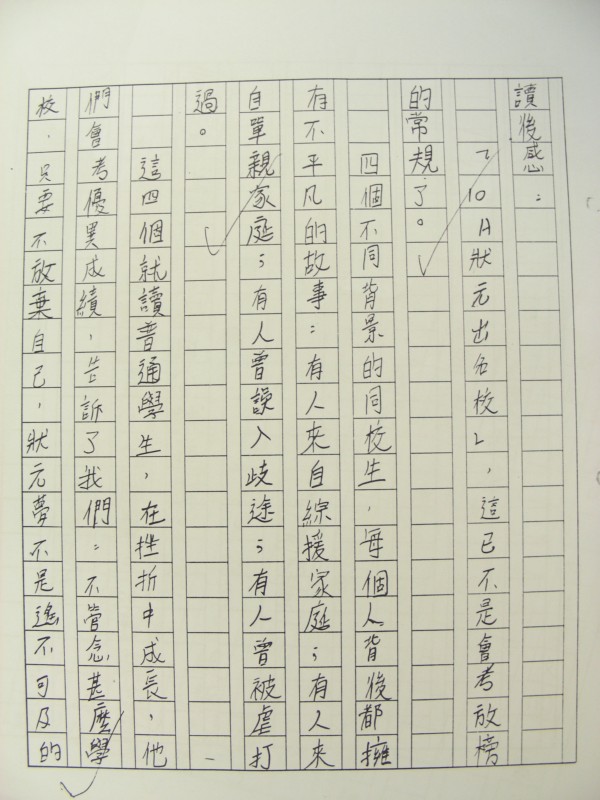 讀後感：
「10A狀元出名校」，這已不是會考放榜
的常規了。
四個不同背景的同校生，每個人背後都擁
有不平凡的故事：有人來自綜援家庭；有人來
自單親家庭；有人曾誤入歧途；有人曾被虐打
過。
這四個就讀普通學生，在挫折中成長，他
們會考優異成績，告訴了我們：不管念甚麼學
校，只要不放棄自己，狀元夢不是遙不可及的